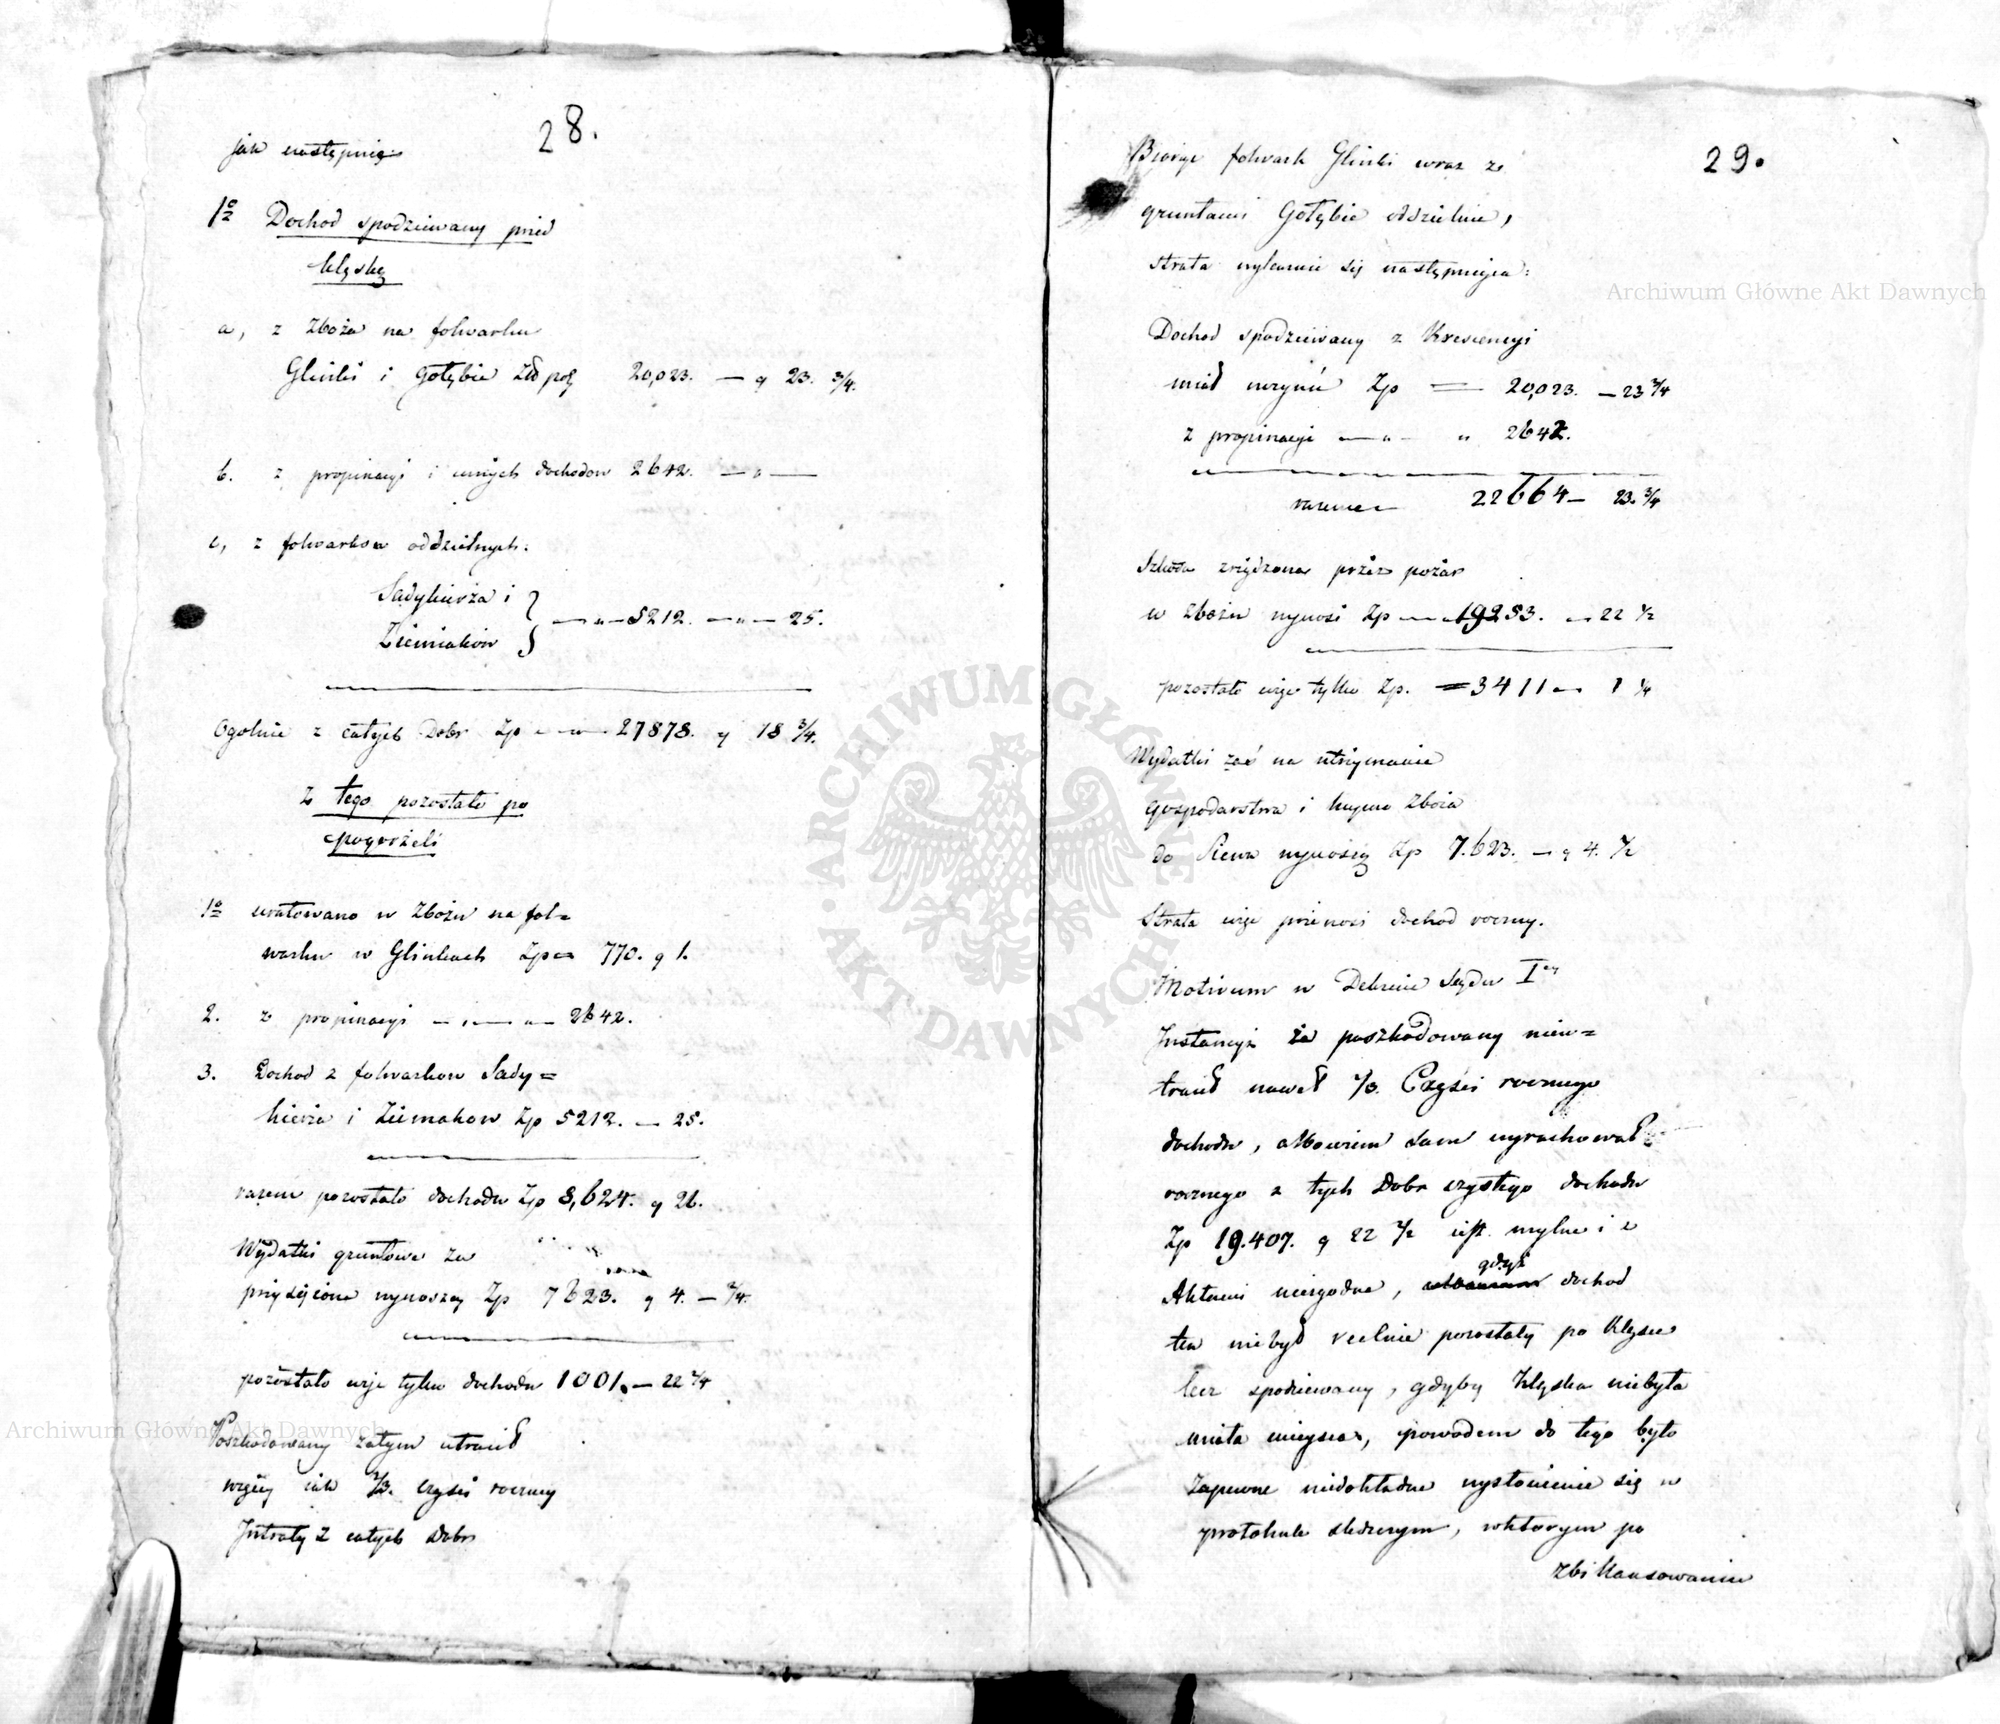 28.
jak następnię
1º Dochod spodziewany przed
klęską
a, z Zboża na folwarku
Glinki i Gołębie Złp pol 20,023. — g 23. 3/4.
b. z propinacyi i innych dochodow 2642. — " —
c, z folwarkow oddzielnych:
Sadykierza i
Ziemiakow — " — 5212. — " — 25.
Ogolnie z całych Dobr Zp — " — 27878. g 18 3/4.
Z tego pozostało po
pogorzeli
1º uratowano w Zbożu na fol=
warku w Glinkach Zp 770. g 1.
2. z propinacyi — " — " — 2642.
3. Dochod z folwarkow Sady=
kierza i Ziemakow Zp 5212. — 25.
razem pozostało dochodu Zp 8,624. g 26.
Wydatki gruntowe za
przysięzione wynoszą Zp 7623. g 4. —
pozostało więc tylko dochodu 1001. — 22
Poszkodowany zatym utracił
więcy jak 2/3. części roczney
Intraty z całych Dobr
29.
Biorąc folwark Glinki wraz z
gruntami Gołębie oddzielnie,
strata wykazuie się następniąca:
Dochod spodziewany z Krescencyi
miał uczynić Zp — 20,023. — 23 3/4
z propinacyi — " — " 2642.
razem — 22664 — 23. 3/4
Szkoda zrządzona przez pożar
w zbożu wynosi Zp — 19253. — 22 1/2
pozostało więc tylko Zp. = 3411 — 1 1/4
Wydatki zaś na utrzymanie
gospodarstwa i kupno Zboża
do Siewu wynoszą Zp 7.623. — g 4. 1/2
Strata więc przenosi dochod roczny.
Motivum w Dekrecie Sądu Iey
Instancyi że poszkodowany nieu=
tracił nawet Części rocznego
dochodu, albowiem sam wyrachował
rocznego z tych Dobr czystego dochodu
Zp 19.407. g 22 1/2 iest mylne i z
Aktami niezgodne, gdyż dochod
ten niebył realnie pozostały po Klęsce
lecz spodziewany, gdyby Klęska niebyła
miała mieysca, powodem do tego było
Zapewne niedokładne wysłowienie się w
protokule śledczym, wktorym po
zbilansowaniu
Archiwum Główne Akt Dawnych
Archiwum Główne Akt Dawnych
ARCHIWUM GŁÓWNE · AKT DAWNYCH ·